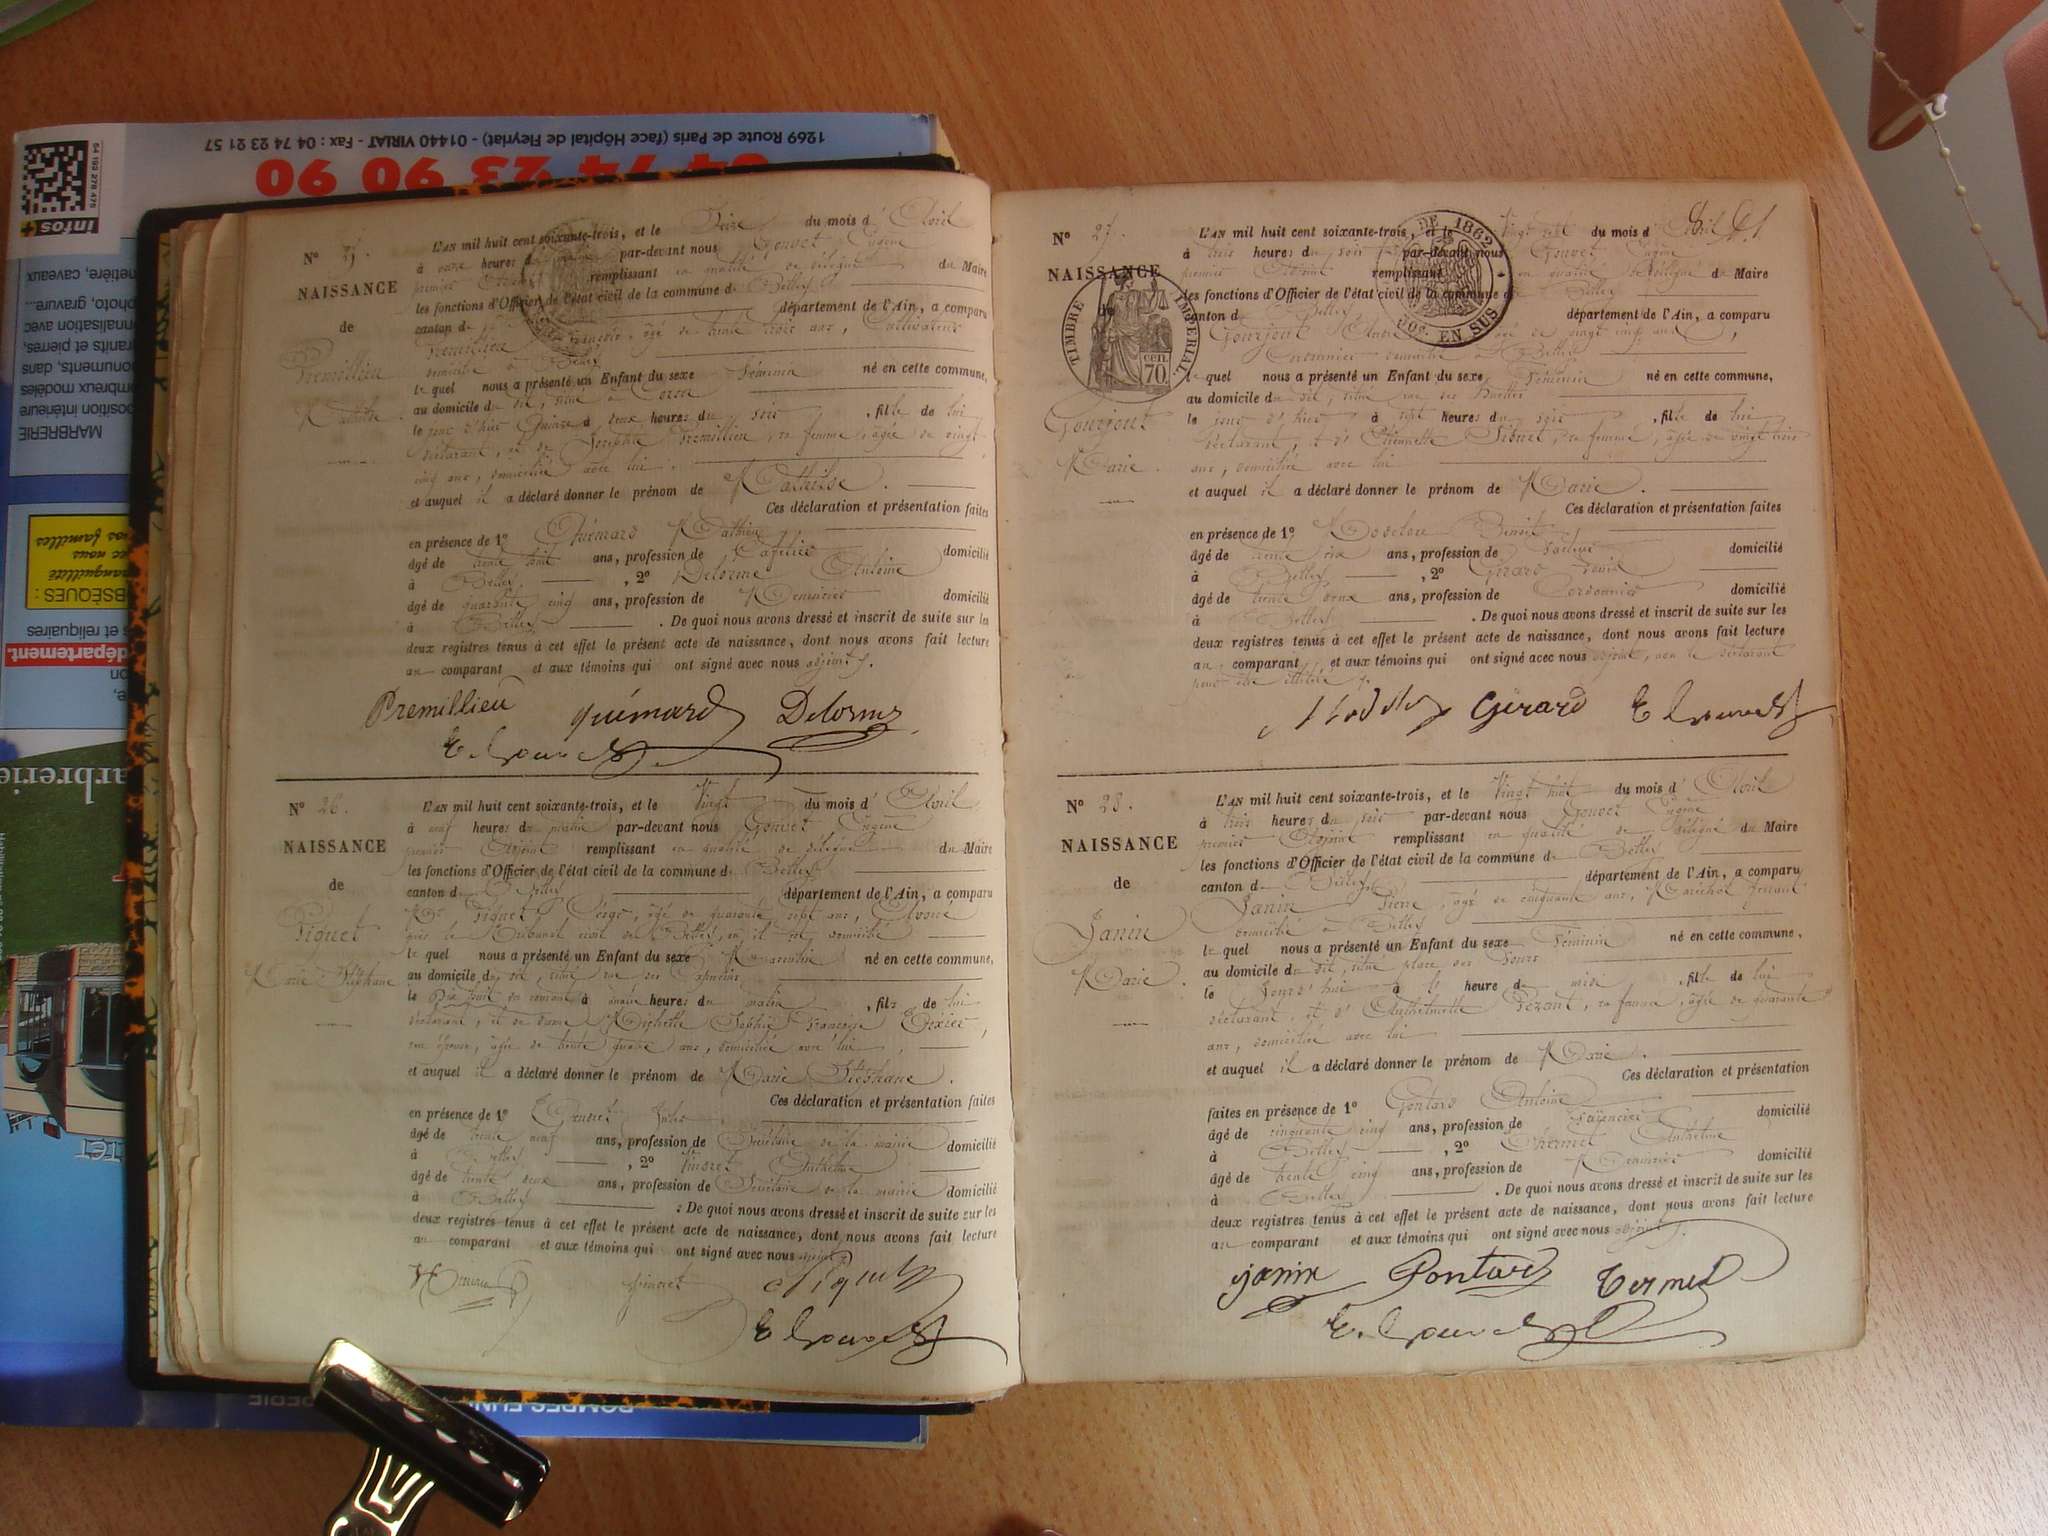 1269 Route de Paris (face Hôpital de Fleyriat) - 01440 VIRIAT - Fax : 04 74 23 21 57
04 74 23 90 90
infos+
photo, gravure...
MARBRERIE
OBSÈQUES :
département.
N° 25.
NAISSANCE
de
Premillieu
Mathilde
L'AN mil huit cent soixante-trois, et le Seize du mois d'Avril
à onze heures du matin par-devant nous Gouvet Eugène
premier Adjoint remplissant en qualité de délégué du Maire
les fonctions d'Officier de l'état civil de la commune de Belley
canton de Belley département de l'Ain, a comparu
Premillieu François, âgé de trente trois ans, Cultivateur
domicilié à Belley
lequel nous a présenté un Enfant du sexe Féminin né en cette commune,
au domicile du dit, situé à Coron
le jour d'hier Quinze à deux heures du soir, fille de lui
déclarant, et de Josephte Premillieu, sa femme, âgée de vingt
cinq ans, domiciliée avec lui.
et auquel il a déclaré donner le prénom de Mathilde.
Ces déclaration et présentation faites
en présence de 1° Quémard Mathieu
âgé de trente huit ans, profession de domicilié
à Belley, 2° Delorme Antoine
âgé de quarante cinq ans, profession de Menuisier domicilié
à Belley. De quoi nous avons dressé et inscrit de suite sur les
deux registres tenus à cet effet le présent acte de naissance, dont nous avons fait lecture
au comparant et aux témoins qui ont signé avec nous adjoint.
Premillieu Quémard Delorme
E. Gouvet
N° 26.
NAISSANCE
de
Piquet
Marie Stéphane
L'AN mil huit cent soixante-trois, et le Vingt du mois d'Avril
à neuf heures du matin par-devant nous Gouvet Eugène
premier Adjoint remplissant en qualité de délégué du Maire
les fonctions d'Officier de l'état civil de la commune de Belley
canton de Belley département de l'Ain, a comparu
Mr Piquet, âgé de quarante sept ans, Avoué
près le Tribunal civil de Belley, où il est domicilié
lequel nous a présenté un Enfant du sexe Masculin né en cette commune,
au domicile du dit, situé rue des Capucins
le Dix huit du courant à onze heures du matin, fils de lui
déclarant, et de dame Michelle Sophie Françoise Texier,
son épouse, âgée de trente quatre ans, domiciliée avec lui,
et auquel il a déclaré donner le prénom de Marie Stéphane.
Ces déclaration et présentation faites
en présence de 1° Jules
âgé de trente neuf ans, profession de Secrétaire de la mairie domicilié
à Belley, 2° Vincret Anthelme
âgé de trente deux ans, profession de Secrétaire de la mairie domicilié
à Belley. De quoi nous avons dressé et inscrit de suite sur les
deux registres tenus à cet effet le présent acte de naissance, dont nous avons fait lecture
au comparant et aux témoins qui ont signé avec nous adjoint
Piquet
E. Gouvet
N° 27.
NAISSANCE
de
Gourjout
Marie.
TIMBRE IMPÉRIAL
70 cen.
DE 1862
EN SUS
L'AN mil huit cent soixante-trois, et le Vingt sept du mois d'Avril
à trois heures du soir par-devant nous Gouvet Eugène
premier Adjoint remplissant en qualité de délégué du Maire
les fonctions d'Officier de l'état civil de la commune de Belley
canton de Belley département de l'Ain, a comparu
Gourjout André âgé de vingt cinq ans,
Cordonnier domicilié à Belley
lequel nous a présenté un Enfant du sexe Féminin né en cette commune,
au domicile du dit, situé rue des Barres
le jour d'hier à sept heures du soir, fille de lui
déclarant, et d'Etiennette Piquet, sa femme, âgée de vingt trois
ans, domiciliée avec lui
et auquel il a déclaré donner le prénom de Marie.
Ces déclaration et présentation faites
en présence de 1° Benoit
âgé de trente six ans, profession de domicilié
à Belley, 2° Girard Louis
âgé de trente deux ans, profession de Cordonnier domicilié
à Belley. De quoi nous avons dressé et inscrit de suite sur les
deux registres tenus à cet effet le présent acte de naissance, dont nous avons fait lecture
au comparant, et aux témoins qui ont signé avec nous adjoint, non le déclarant
pour être illitéré.
Girard E. Gouvet
N° 28.
NAISSANCE
de
Janin
Marie.
L'AN mil huit cent soixante-trois, et le Vingt huit du mois d'Avril
à trois heures du soir par-devant nous Gouvet Eugène
premier Adjoint remplissant en qualité de délégué du Maire
les fonctions d'Officier de l'état civil de la commune de Belley
canton de Belley département de l'Ain, a comparu
Janin Pierre, âgé de cinquante ans, Maréchal ferrant
domicilié à Belley
lequel nous a présenté un Enfant du sexe Féminin né en cette commune,
au domicile du dit, situé place des Fours
le Jourd'hui à l' heure de midi, fille de lui
déclarant, et d'Anthelmette Pezant, sa femme, âgée de quarante
ans, domiciliée avec lui
et auquel il a déclaré donner le prénom de Marie.
Ces déclaration et présentation
faites en présence de 1° Pontard Antoine
âgé de cinquante cinq ans, profession de Fayencier domicilié
à Belley, 2° Thermet Anthelme
âgé de trente cinq ans, profession de Menuisier domicilié
à Belley. De quoi nous avons dressé et inscrit de suite sur les
deux registres tenus à cet effet le présent acte de naissance, dont nous avons fait lecture
au comparant et aux témoins qui ont signé avec nous adjoint.
janin Pontard Termet
E. Gouvet